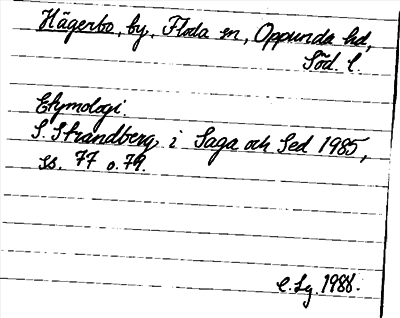 Hägerbo, by, Floda sn, Oppunda hd,
Söd. l.
Etymologi.
S. Strandberg i Saga och Sed 1985,
ss. 77 o. 79.
E. Lg. 1988.